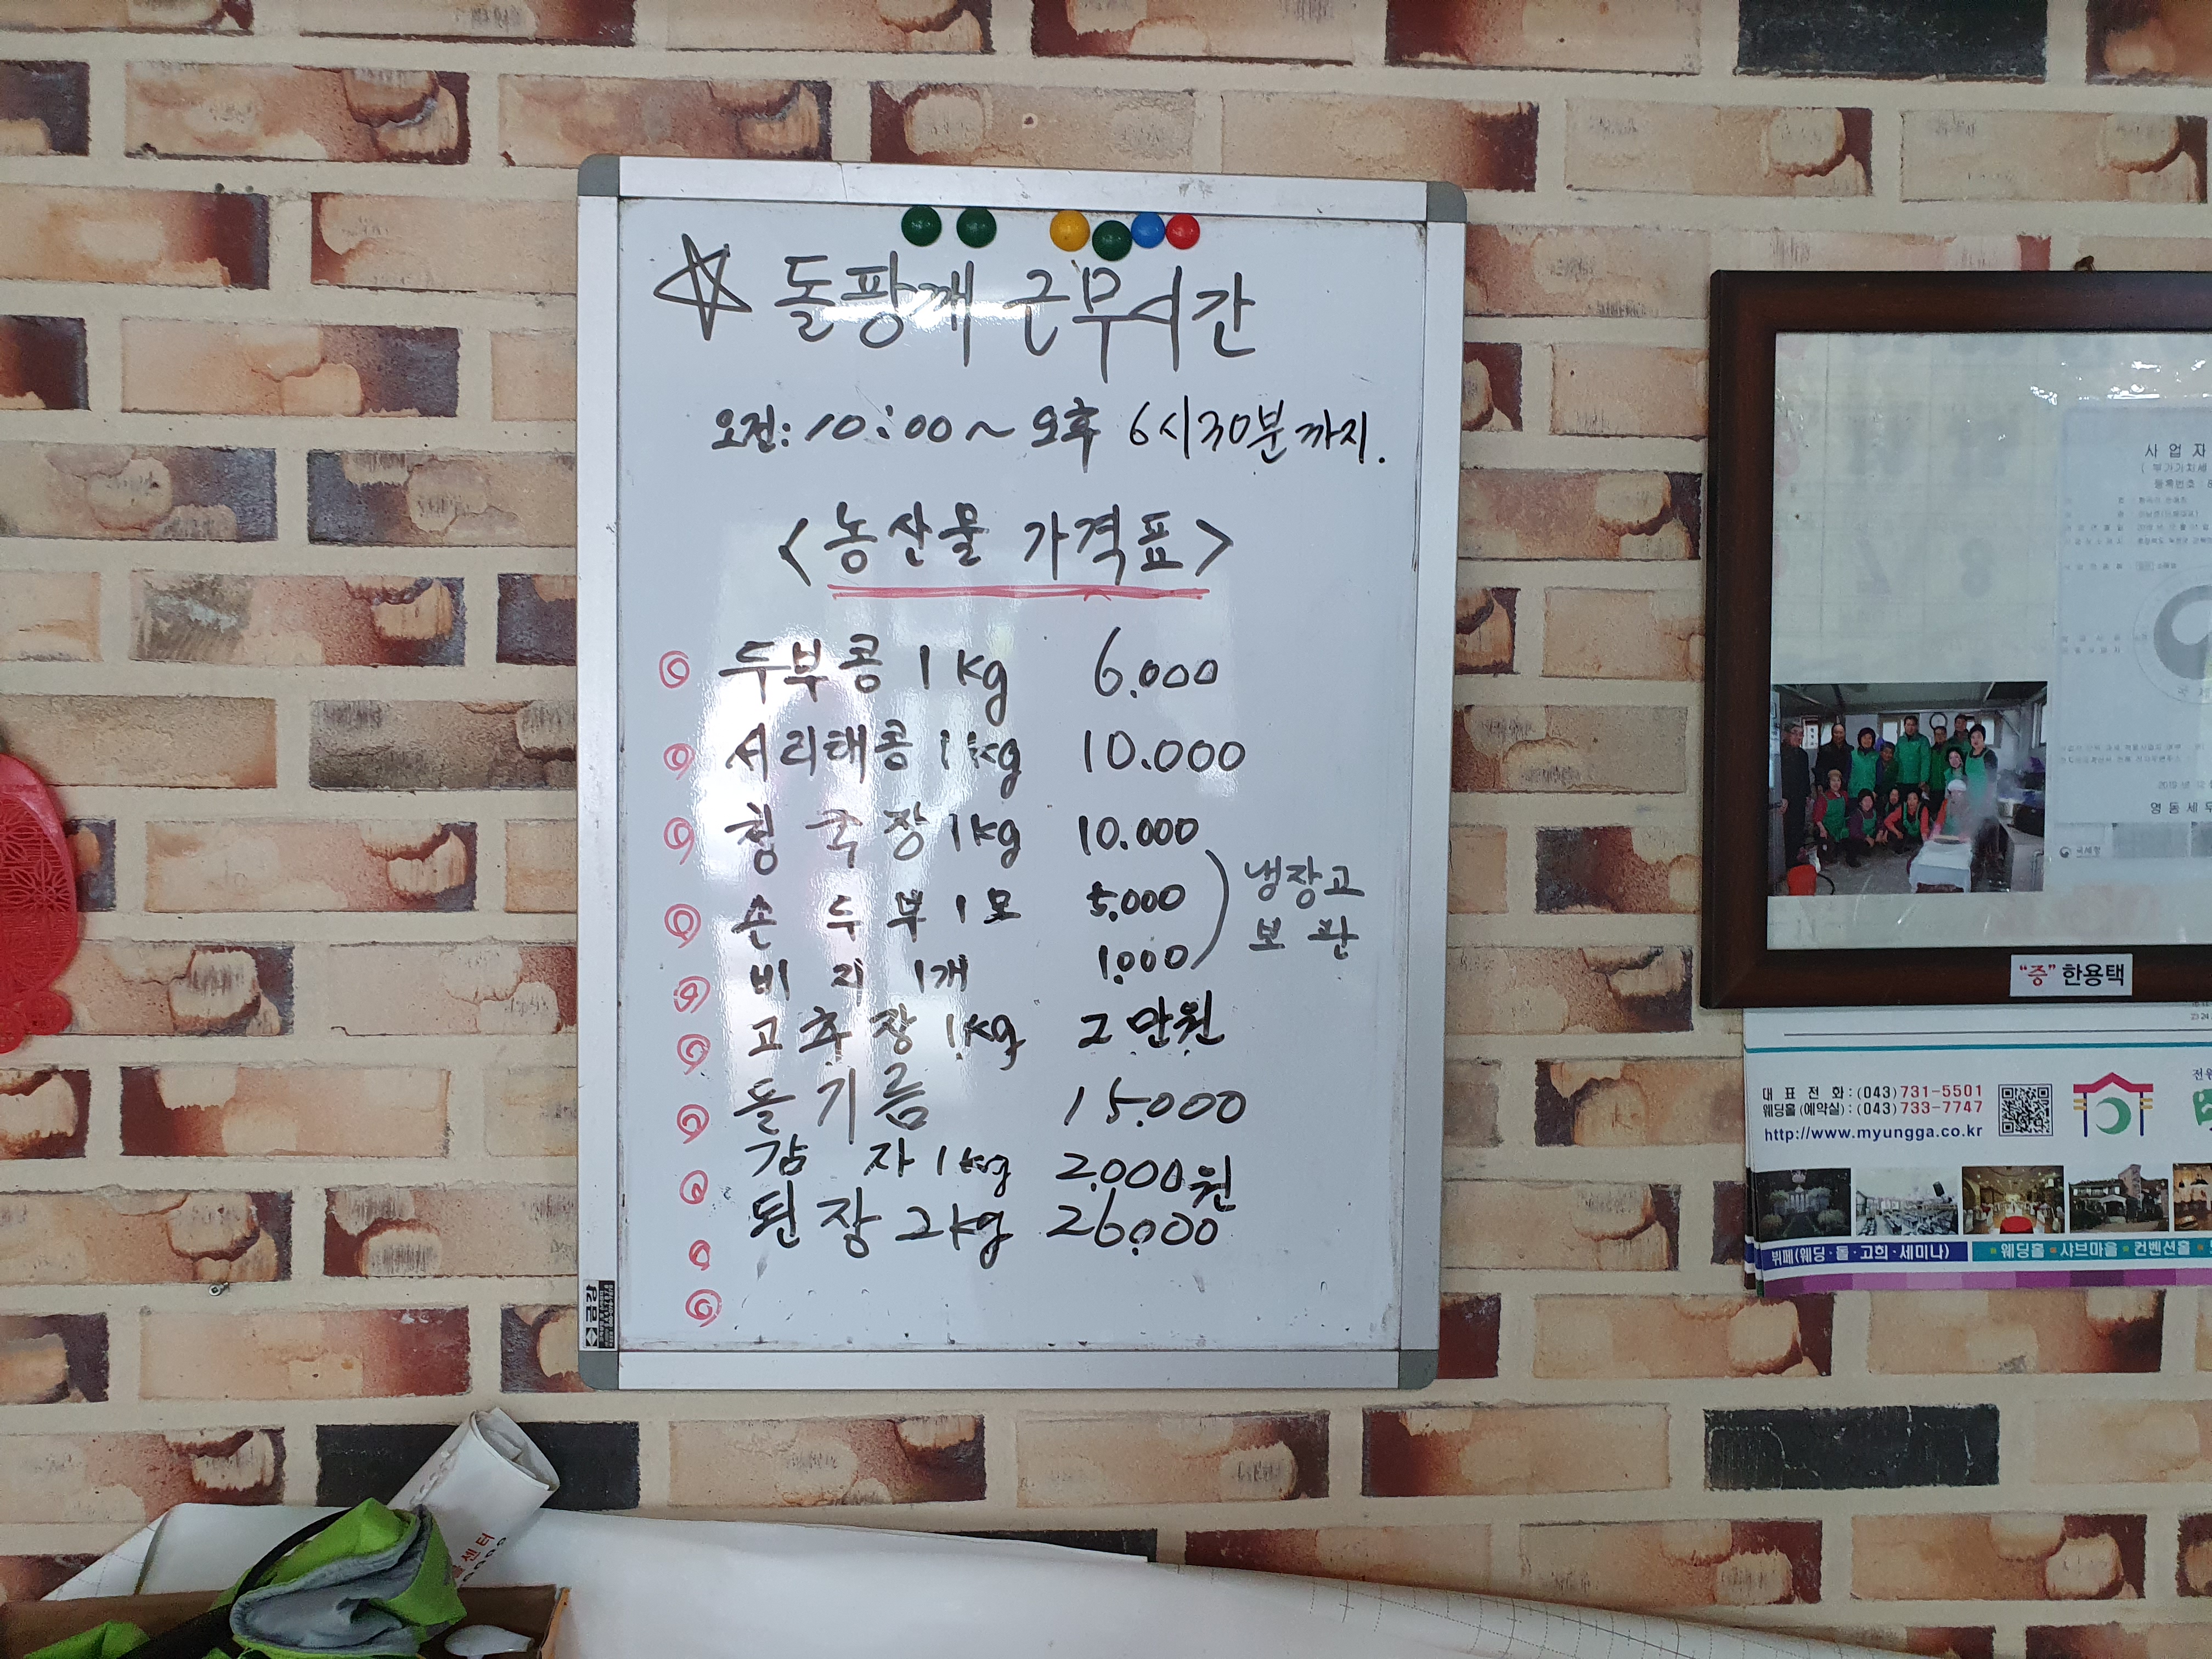 돌팡깨 근무시간
오전: 10:00 ~ 오후 6시30분까지.
<농산물 가격표>
두부콩 1kg 6.000
서리태콩 1kg 10.000
청국장 1kg 10.000
손두부 1모 5.000
비지 1개 1.000
냉장고
보관
고추장 1kg 2만원
들기름 15.000
감자 1kg 2.000원
된장 2kg 26.000
금강
사업자
"증" 한용택
대표전화 : (043) 731-5501
웨딩홀(예약실) : (043) 733-7747
http://www.myungga.co.kr
뷔페(웨딩·돌·고희·세미나)
웨딩홀 샤브마을 컨벤션홀
센터